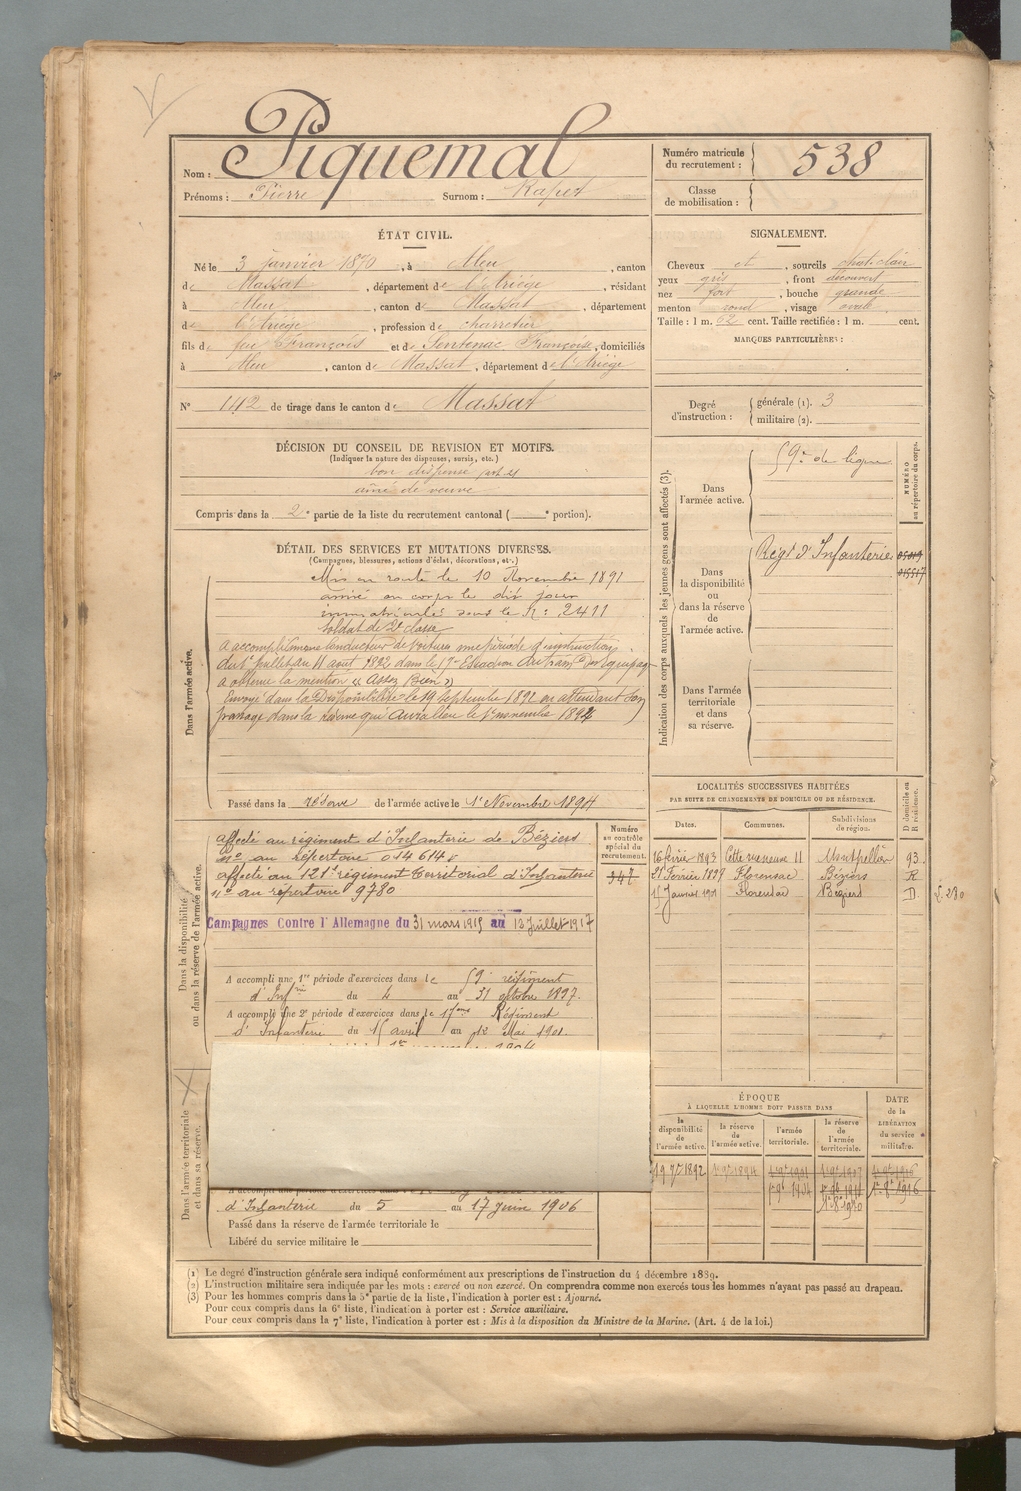 Nom : Piquemal
Prénoms : Pierre Surnom : Rapet
Numéro matricule du recrutement : 538
Classe de mobilisation :
ÉTAT CIVIL.
Né le 3 janvier 1870, à Aleu, canton
de Massat, département de l'Ariège, résidant
à Aleu, canton de Massat, département
de l'Ariège, profession de charretier
fils de feu François et de Sentenac Françoise, domiciliés
à Aleu, canton de Massat, département de l'Ariège
N° 142 de tirage dans le canton de Massat
SIGNALEMENT.
Cheveux et, sourcils chat. clair
yeux gris, front découvert
nez fort, bouche grande
menton rond, visage ovale
Taille : 1 m. 62 cent. Taille rectifiée : 1 m. cent.
MARQUES PARTICULIÈRES :
Degré d'instruction : générale (1). 3
militaire (2).
DÉCISION DU CONSEIL DE REVISION ET MOTIFS.
(Indiquer la nature des dispenses, sursis, etc.)
bon dispensé
aîné de veuve
Compris dans la 2e partie de la liste du recrutement cantonal ( e portion).
DÉTAIL DES SERVICES ET MUTATIONS DIVERSES.
(Campagnes, blessures, actions d'éclat, décorations, etc.)
Dans l'armée active.
Mis en route le 10 Novembre 1891
arrivé au corps le dit jour
immatriculé sous le N° 2411
Soldat de 2e classe
a accompli comme Conducteur de voitures une période d'instruction
du 1er juillet au 11 août 1892 dans le 17e Escadron du train des équipages
a obtenu la mention « Assez Bien »
Envoyé dans la Disponibilité le 19 Septembre 1892 en attendant son
passage dans la réserve qui aura lieu le 1er novembre 1894
Passé dans la réserve de l'armée active le 1er Novembre 1894
Indication des corps auxquels les jeunes gens sont affectés (3).
NUMÉRO au répertoire du corps.
Dans l'armée active.
59e de ligne
Dans la disponibilité ou dans la réserve de l'armée active.
Régt d'Infanterie
015517
Dans l'armée territoriale et dans sa réserve.
Dans la disponibilité ou dans la réserve de l'armée active.
Numéro au contrôle spécial du recrutement.
947
affecté au régiment d'Infanterie de Béziers
n° au répertoire 014614
affecté au 121e régiment Territorial d'Infanterie
n° au répertoire 9780
Campagnes Contre l'Allemagne du 31 mars 1915 au 13 Juillet 1917
A accompli une 1re période d'exercices dans le 59e régiment
d'Infrie du 4 au 31 octobre 1897.
A accompli une 2e période d'exercices dans le 17ème Régiment
d'Infanterie du 15 avril au 12 Mai 1901.
LOCALITÉS SUCCESSIVES HABITÉES
PAR SUITE DE CHANGEMENTS DE DOMICILE OU DE RÉSIDENCE.
Dates. Communes. Subdivisions de région. D domicile ou R résidence.
16 février 1893 Cette 11 Montpellier 93.
21 Février 1897 Florensac Béziers R
15 Janvier 1901 Florensac Béziers D.
ÉPOQUE
À LAQUELLE L'HOMME DOIT PASSER DANS
la disponibilité de l'armée active. la réserve de l'armée active. l'armée territoriale. la réserve de l'armée territoriale.
DATE de la LIBÉRATION du service militaire.
19 7bre 1892 1er 9bre 1894
Dans l'armée territoriale et dans sa réserve.
d'Infanterie du 5 au 17 juin 1906
Passé dans la réserve de l'armée territoriale le
Libéré du service militaire le
(1) Le degré d'instruction générale sera indiqué conformément aux prescriptions de l'instruction du 4 décembre 1889.
(2) L'instruction militaire sera indiquée par les mots : exercé ou non exercé. On comprendra comme non exercés tous les hommes n'ayant pas passé au drapeau.
(3) Pour les hommes compris dans la 5e partie de la liste, l'indication à porter est : Ajourné.
Pour ceux compris dans la 6e liste, l'indication à porter est : Service auxiliaire.
Pour ceux compris dans la 7e liste, l'indication à porter est : Mis à la disposition du Ministre de la Marine. (Art. 4 de la loi.)